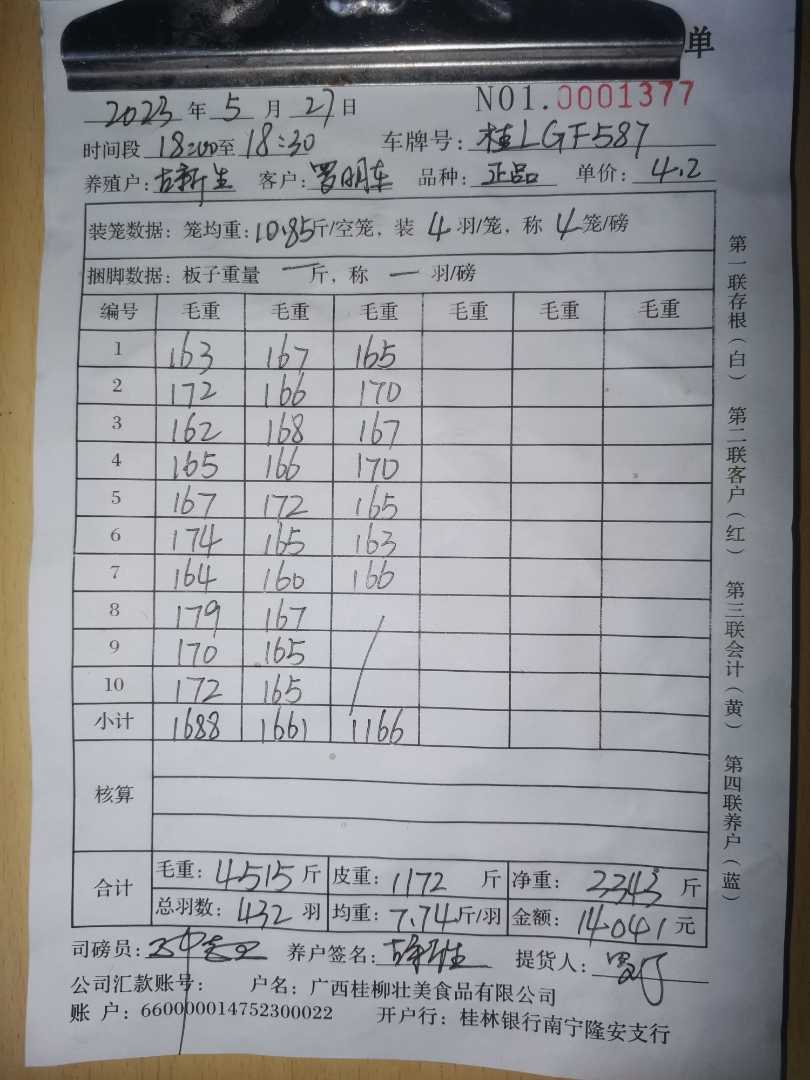 单
2023 年 5 月 27 日 NO1.0001377
时间段 18:00 至 18:30 车牌号: 桂LGF587
养殖户: 古新生 客户: 罗明东 品种: 正品 单价: 4.2
装笼数据: 笼均重: 10.85 斤/空笼, 装 4 羽/笼, 称 4 笼/磅
捆脚数据: 板子重量 一 斤, 称 一 羽/磅
编号 毛重 毛重 毛重 毛重 毛重 毛重
1 163 167 165
2 172 166 170
3 162 168 167
4 165 166 170
5 167 172 165
6 174 165 163
7 164 160 166
8 179 167
9 170 165
10 172 165
小计 1688 1661 1166
核算
合计 毛重: 4515 斤 皮重: 1172 斤 净重: 3343 斤
总羽数: 432 羽 均重: 7.74 斤/羽 金额: 14041 元
司磅员: 养户签名: 古新生 提货人:
公司汇款账号: 户名: 广西桂柳壮美食品有限公司
账 户: 660000014752300022 开户行: 桂林银行南宁隆安支行
第一联存根(白) 第二联客户(红) 第三联会计(黄) 第四联养户(蓝)